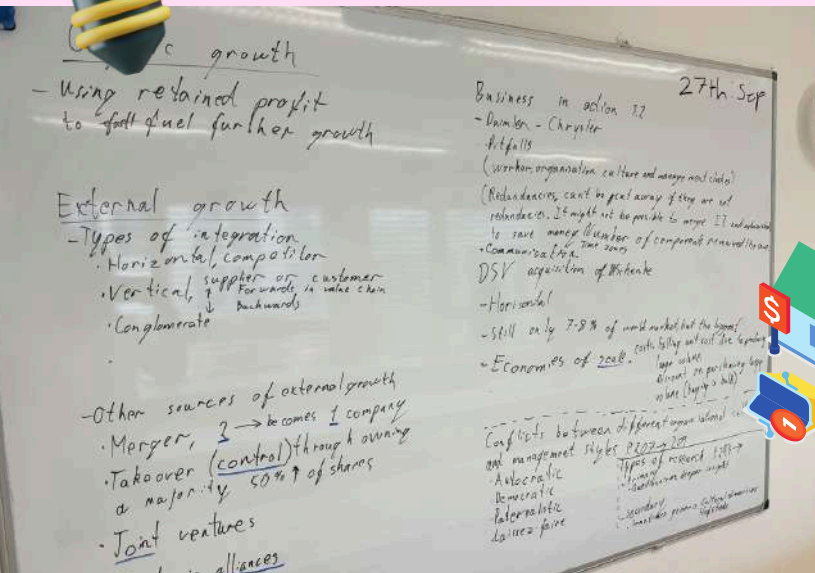 growth
- Using retained profit
to fuel further growth
External growth
- Types of integration
· Horizontal, competitor
· Vertical, supplier or customer
Forwards, in value chain
Backwards
· Conglomerate
- Other sources of external growth
· Merger, 2 → becomes 1 company
· Takeover (control) through owning
a majority 50% ↑ of shares
· Joint ventures
alliances
27th Sep
Business in action
- Daimler - Chrysler
Pitfalls
(worker, organisation culture and management
(Redundancies, can't be if they are not
redundancies. It might not be possible to merge IT and
to save money Number of components remained the same
· Communication Time zones
DSV acquisition of
- Horisontal
- still only 7-8% of world market, but the biggest
- Economies of scale.
large volume
Discount on purchasing large
volume (buying in bulk)
Conflicts between different
and management styles P207 → 209
· Autocratic
Democratic
Paternalistic
Laissez-faire
Types of research
· Primary
deeper insight
- secondary